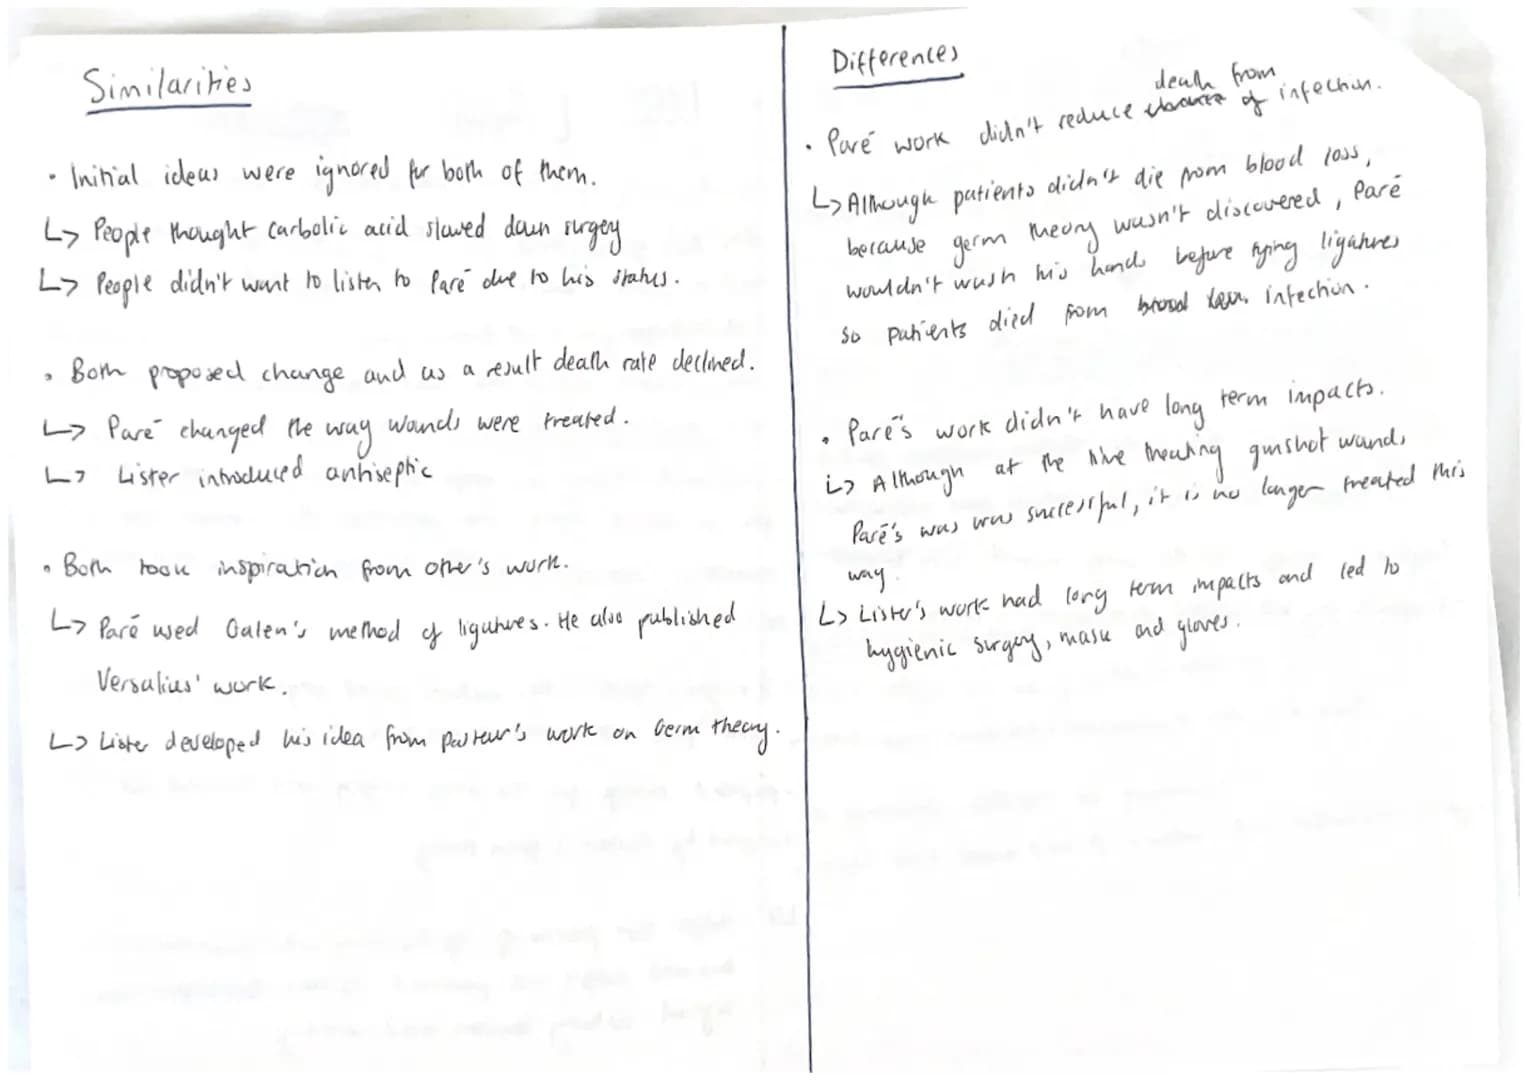 Similarities
• Initial ideas were ignored for both of them.
↳ People thought carbolic acid slowed down surgey
↳ People didn't want to listen to Paré due to his status.
• Both proposed change and as a result death rate declined.
↳ Paré changed the way wounds were treated.
↳ Lister introduced antiseptic
• Both took inspiration from other's work.
↳ Paré used Galen's method of ligatures. He also published
Versalius' work.
↳ Lister developed his idea from Pasteur's work on Germ theory.
Differences
death from
• Paré work didn't reduce chance of infection.
↳ Although patients didn't die from blood loss,
because germ theory wasn't discovered, Paré
wouldn't wash his hands before tying ligatures
so patients died from blood infection.
• Paré's work didn't have long term impacts.
↳ Although at the time treating gunshot wounds,
Paré's was was successful, it is no longer treated this
way.
↳ Lister's work had long term impacts and led to
hygienic surgery, mask and gloves.